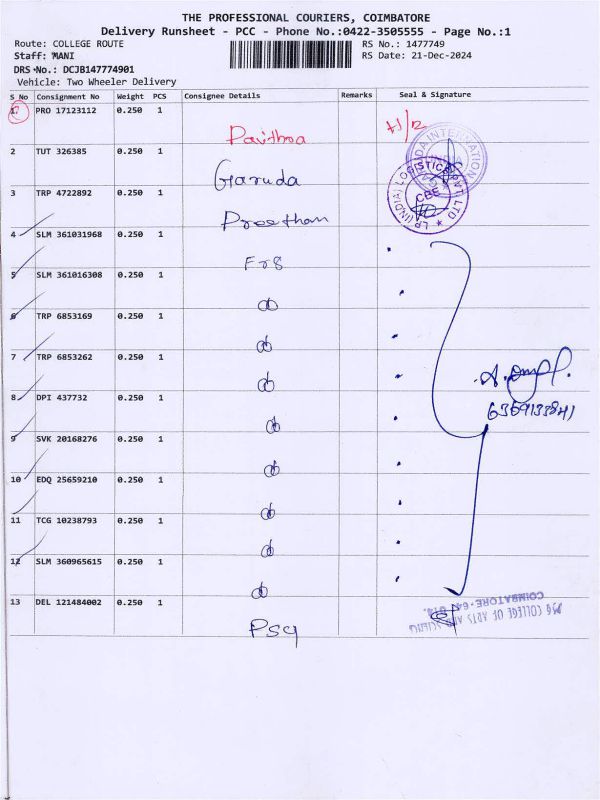 THE PROFESSIONAL COURIERS, COIMBATORE
Delivery Runsheet - PCC - Phone No.:0422-3505555 - Page No.:1
Route: COLLEGE ROUTE
RS No.: 1477749
Staff: MANI
RS Date: 21-Dec-2024
DRS No.: DCJB147774901
Vehicle: Two Wheeler Delivery
S No Consignment No Weight PCS Consignee Details Remarks Seal & Signature
1 PRO 17123112 0.250 1
Pavithra
2 TUT 326385 0.250 1
Garuda
3 TRP 4722892 0.250 1
Preetham
LP (INDIA) LOGISTICS PVT LTD
CBE
4 SLM 361031968 0.250 1
5 SLM 361016308 0.250 1
6 TRP 6853169 0.250 1
7 TRP 6853262 0.250 1
8 DPI 437732 0.250 1
6369133841
9 SVK 20168276 0.250 1
10 EDQ 25659210 0.250 1
11 TCG 10238793 0.250 1
12 SLM 360965615 0.250 1
13 DEL 121484002 0.250 1
PSG
PSG COLLEGE OF ARTS AND SCIENCE
COIMBATORE - 641 014.